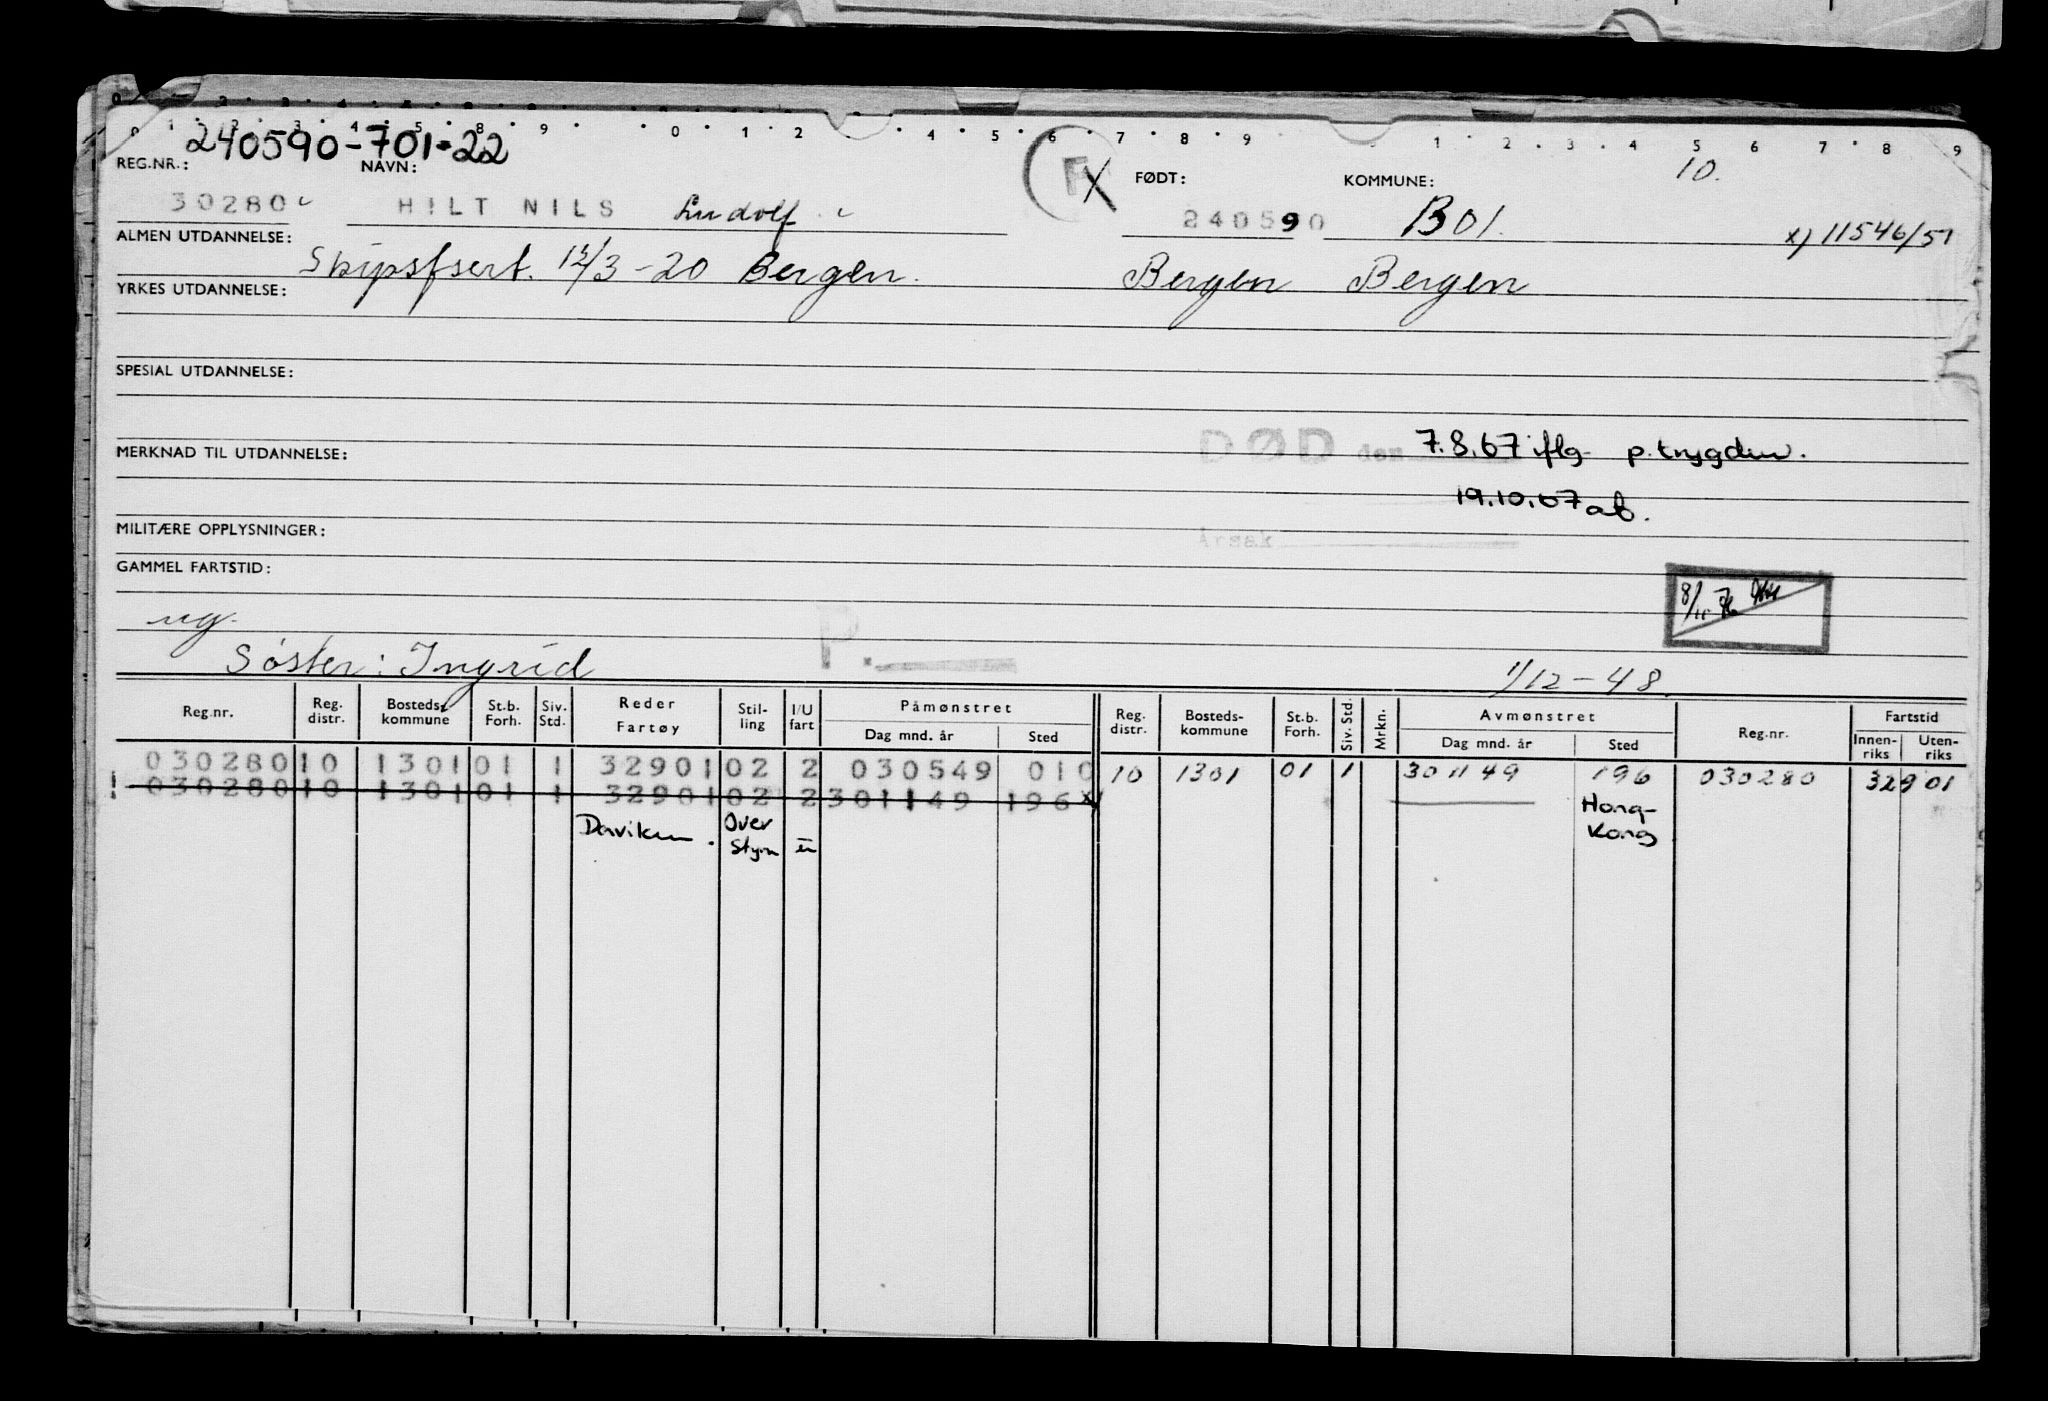 0 1 2 3 4 5 8 9 0 1 2 4 5 6 7 8 9 1 2 3 4 5 6 7 8 9
240590-701-22
10.
REG.NR.: NAVN: F X FØDT: KOMMUNE:
30280 HILT NILS Ludolf 240590 B01. x) 11546/51
ALMEN UTDANNELSE: Skipsfsert. 12/3-20 Bergen. Bergen Bergen
YRKES UTDANNELSE:
SPESIAL UTDANNELSE:
MERKNAD TIL UTDANNELSE: DØD den 7.8.67 iflg. p.trygden.
19.10.67 ab.
MILITÆRE OPPLYSNINGER: Årsak
GAMMEL FARTSTID:
ug. P.
Søster: Ingrid 1/12-48.
Reg.nr. Reg. distr. Bosteds- kommune St.b. Forh. Siv. Std. Reder Fartøy Stil- ling I/U fart Påmønstret Dag mnd. år Sted Reg. distr. Bosteds- kommune St.b. Forh. Siv. Std. Mrkn. Avmønstret Dag mnd. år Sted Reg.nr. Fartstid Innen- riks Uten- riks
030280 10 1301 01 1 32901 02 2 030549 010 10 1301 01 1 301149 196 030280 32901
030280 10 1301 01 1 32901 02 2 301149 196 x) Hong-
Daviken. Over Styrm u Kong